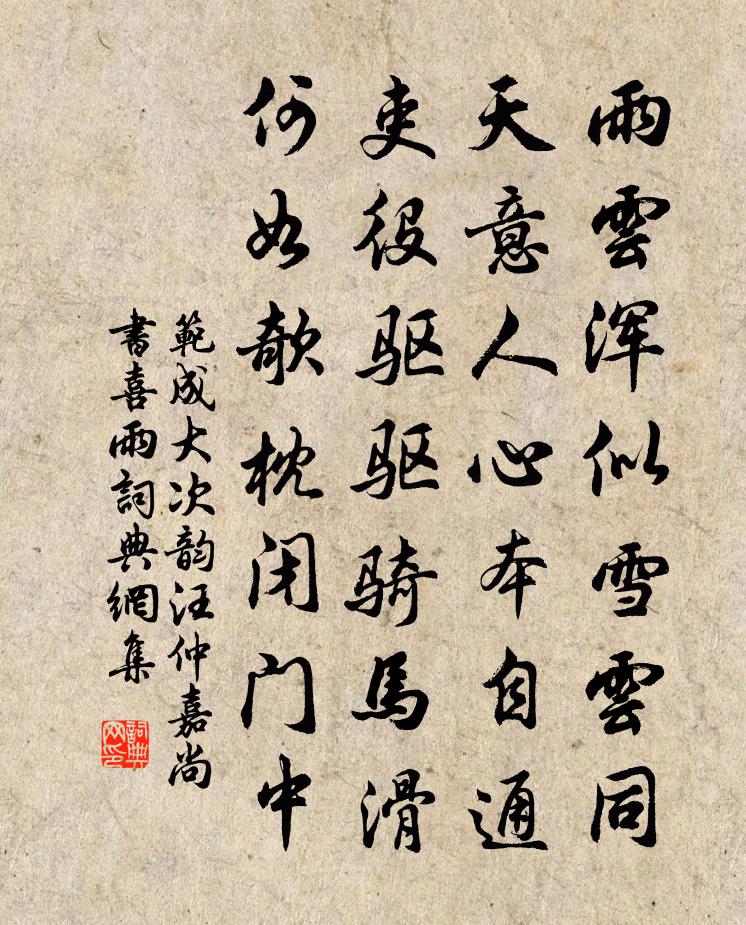 雨雲浑似雪雲同
天意人心本自通
吏役驱驱骑馬滑
何如欹枕闭门中
範成大次韵汪仲嘉尚
書喜雨詞典網集
詞典网印